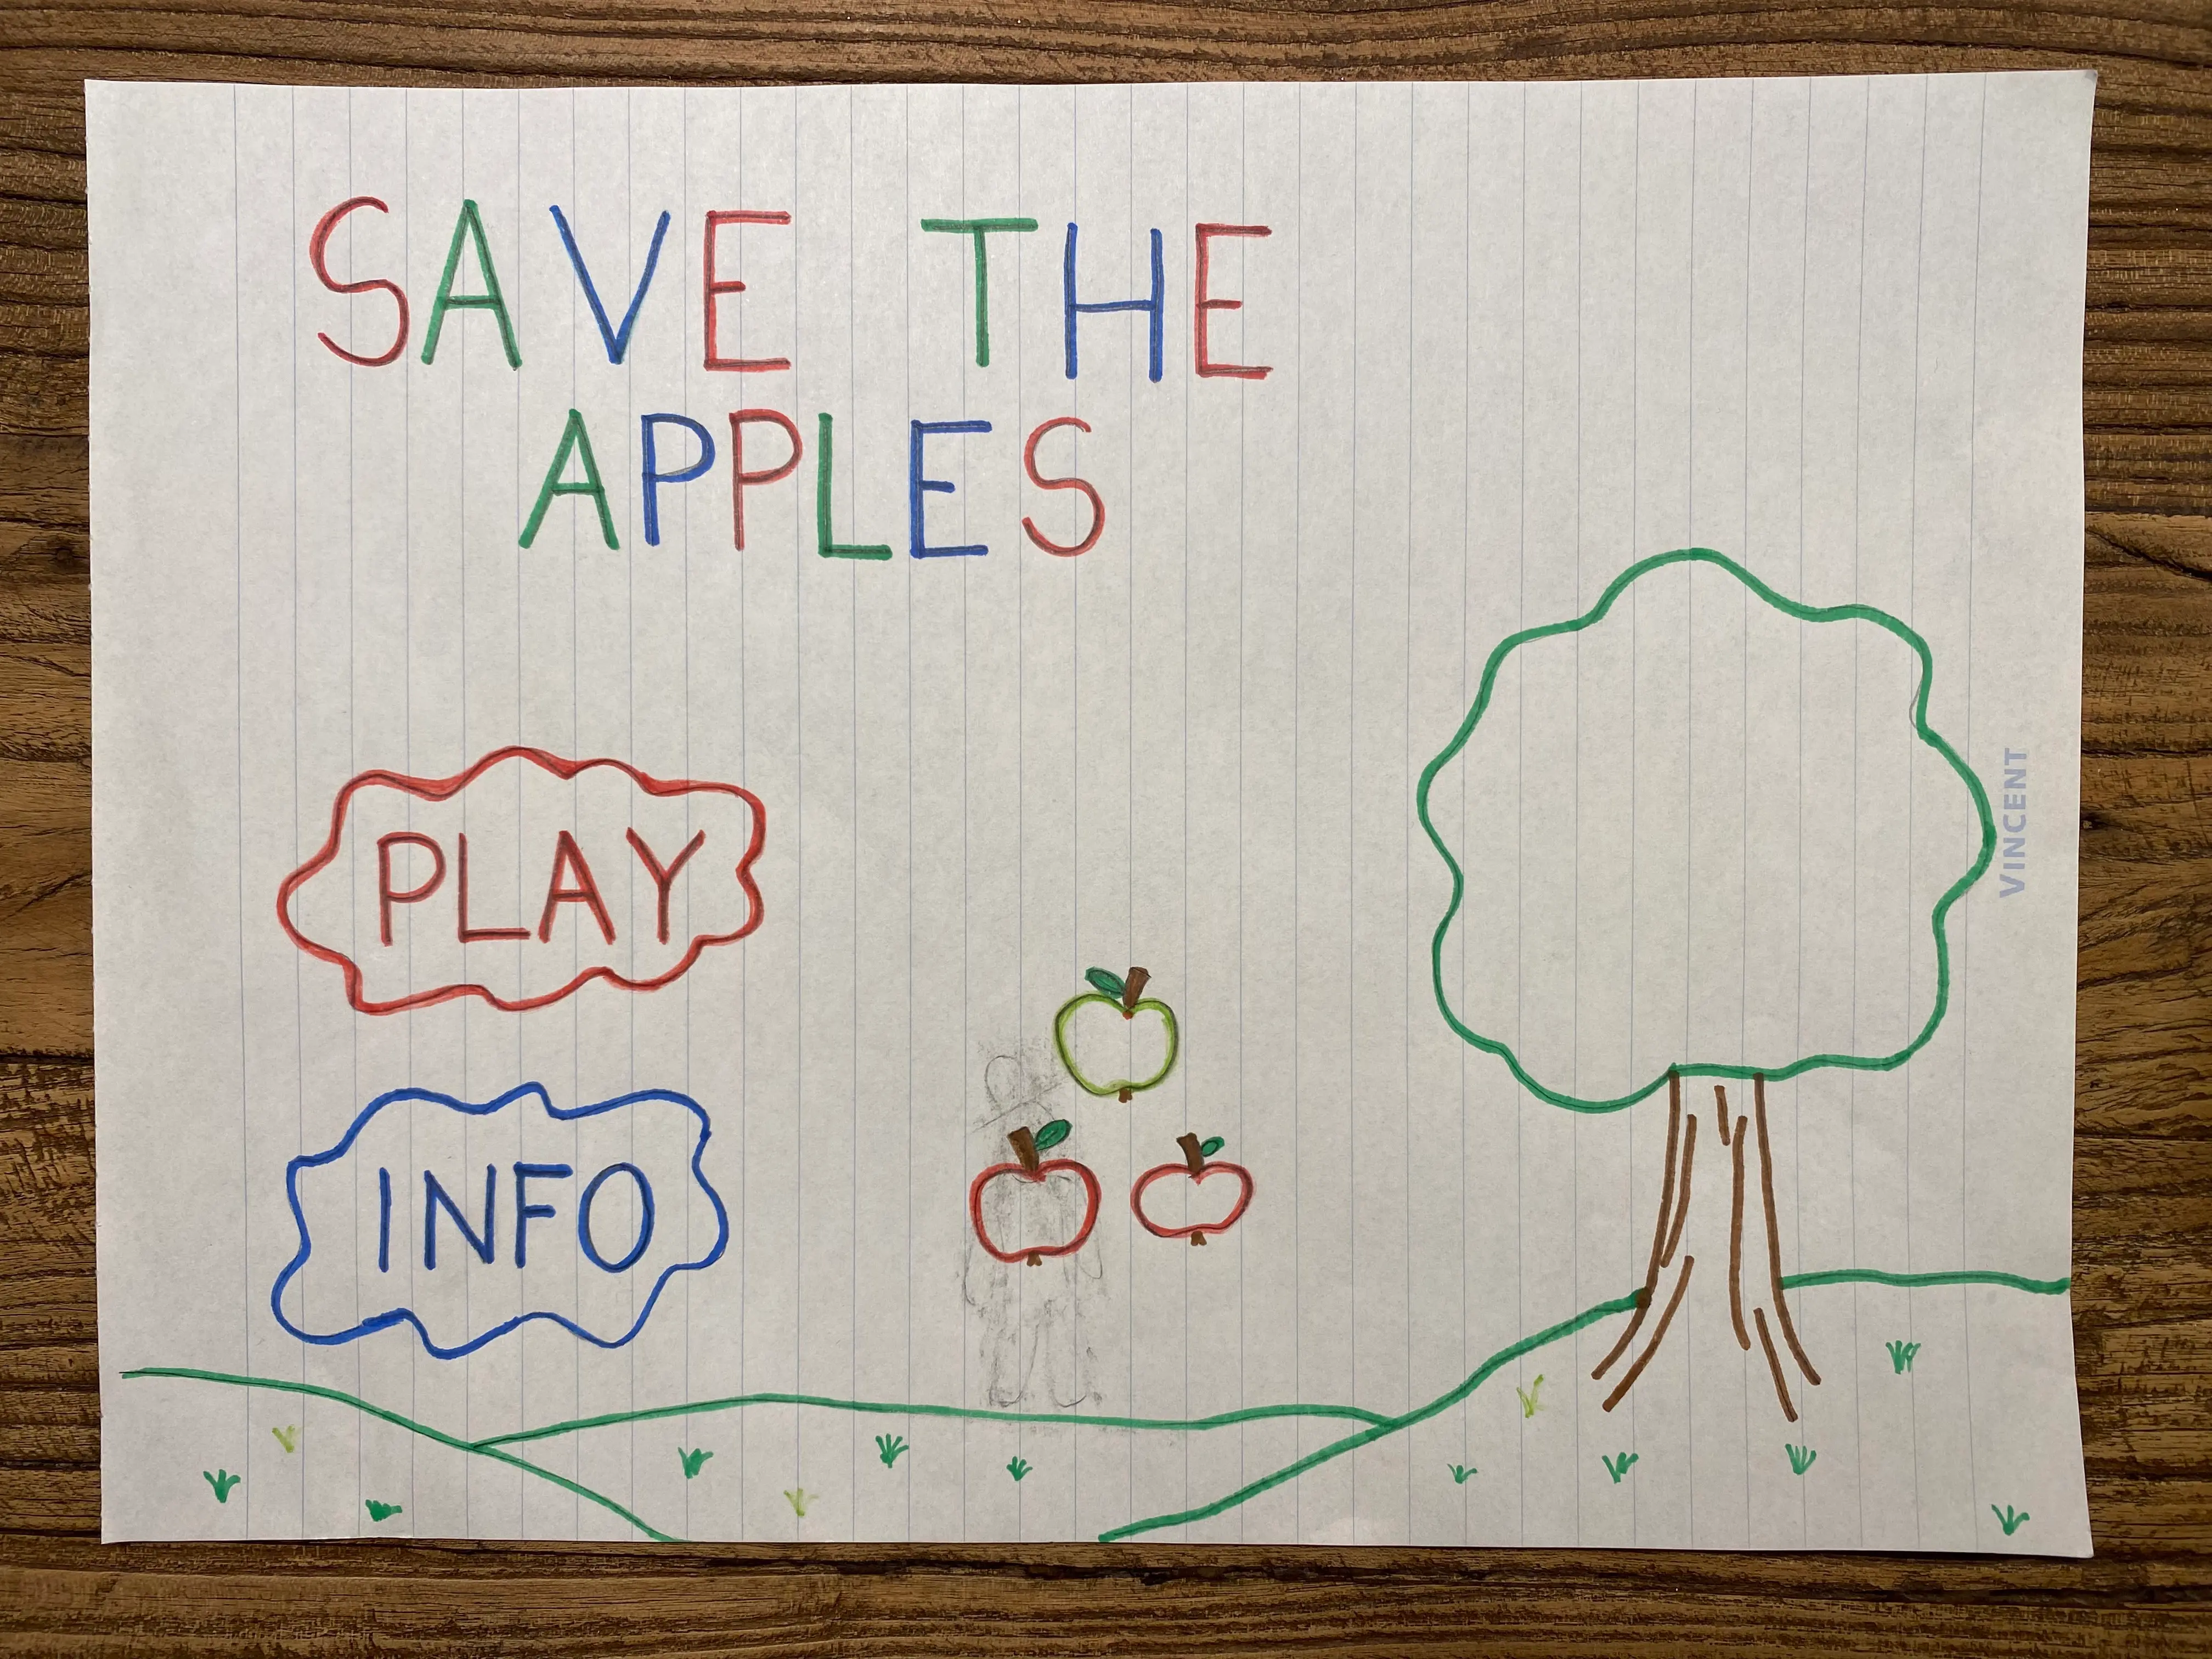 SAVE THE
APPLES
PLAY
INFO
VINCENT